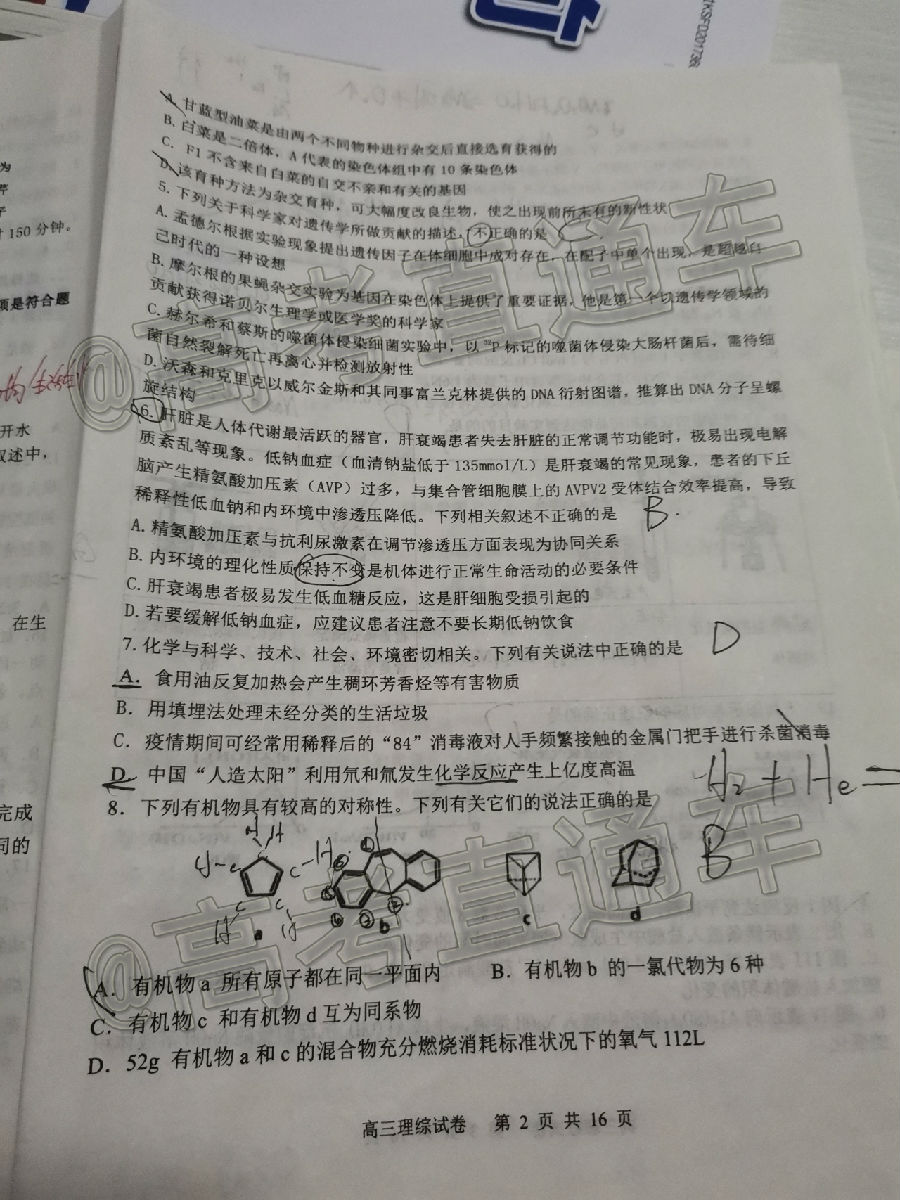 KSFD201738
A. 甘蓝型油菜是由两个不同物种进行杂交后直接选育获得的
B. 白菜是二倍体，A 代表的染色体组中有 10 条染色体
C. F1 不含来自白菜的自交不亲和有关的基因
D. 该育种方法为杂交育种，可大幅度改良生物，使之出现前所未有的新性状
5. 下列关于科学家对遗传学所做贡献的描述，不正确的是
A. 孟德尔根据实验现象提出遗传因子在体细胞中成对存在，在配子中单个出现，是超越自
己时代的一种设想
B. 摩尔根的果蝇杂交实验为基因在染色体上提供了重要证据，他是第一个以遗传学领域的
贡献获得诺贝尔生理学或医学奖的科学家
C. 赫尔希和蔡斯的噬菌体侵染细菌实验中，以 ³²P 标记的噬菌体侵染大肠杆菌后，需待细
菌自然裂解死亡再离心并检测放射性
D. 沃森和克里克以威尔金斯和其同事富兰克林提供的 DNA 衍射图谱，推算出 DNA 分子呈螺
旋结构
6. 肝脏是人体代谢最活跃的器官，肝衰竭患者失去肝脏的正常调节功能时，极易出现电解
质紊乱等现象。低钠血症（血清钠盐低于 135mmol/L）是肝衰竭的常见现象，患者的下丘
脑产生精氨酸加压素（AVP）过多，与集合管细胞膜上的 AVPV2 受体结合效率提高，导致
稀释性低血钠和内环境中渗透压降低。下列相关叙述不正确的是 B.
A. 精氨酸加压素与抗利尿激素在调节渗透压方面表现为协同关系
B. 内环境的理化性质保持不变是机体进行正常生命活动的必要条件
C. 肝衰竭患者极易发生低血糖反应，这是肝细胞受损引起的
D. 若要缓解低钠血症，应建议患者注意不要长期低钠饮食
7. 化学与科学、技术、社会、环境密切相关。下列有关说法中正确的是 D
A. 食用油反复加热会产生稠环芳香烃等有害物质
B. 用填埋法处理未经分类的生活垃圾
C. 疫情期间可经常用稀释后的“84”消毒液对人手频繁接触的金属门把手进行杀菌消毒
D. 中国“人造太阳”利用氘和氚发生化学反应产生上亿度高温
H₂ + He =
8. 下列有机物具有较高的对称性。下列有关它们的说法正确的是
B
a b c d
A. 有机物 a 所有原子都在同一平面内 B. 有机物 b 的一氯代物为 6 种
C. 有机物 c 和有机物 d 互为同系物
D. 52g 有机物 a 和 c 的混合物充分燃烧消耗标准状况下的氧气 112L
高三理综试卷 第 2 页 共 16 页
@高考直通车
@高考直通车
150 分钟。
项是符合题
开水
叙述中，
在生
完成
同的